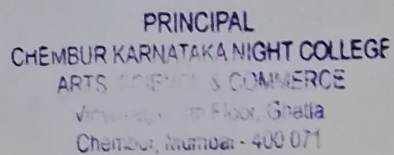 PRINCIPAL
CHEMBUR KARNATAKA NIGHT COLLEGE
ARTS SCIENCE & COMMERCE
Floor, Ghatla
Chembur, Mumbai - 400 071